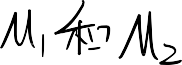 M₁和M₂